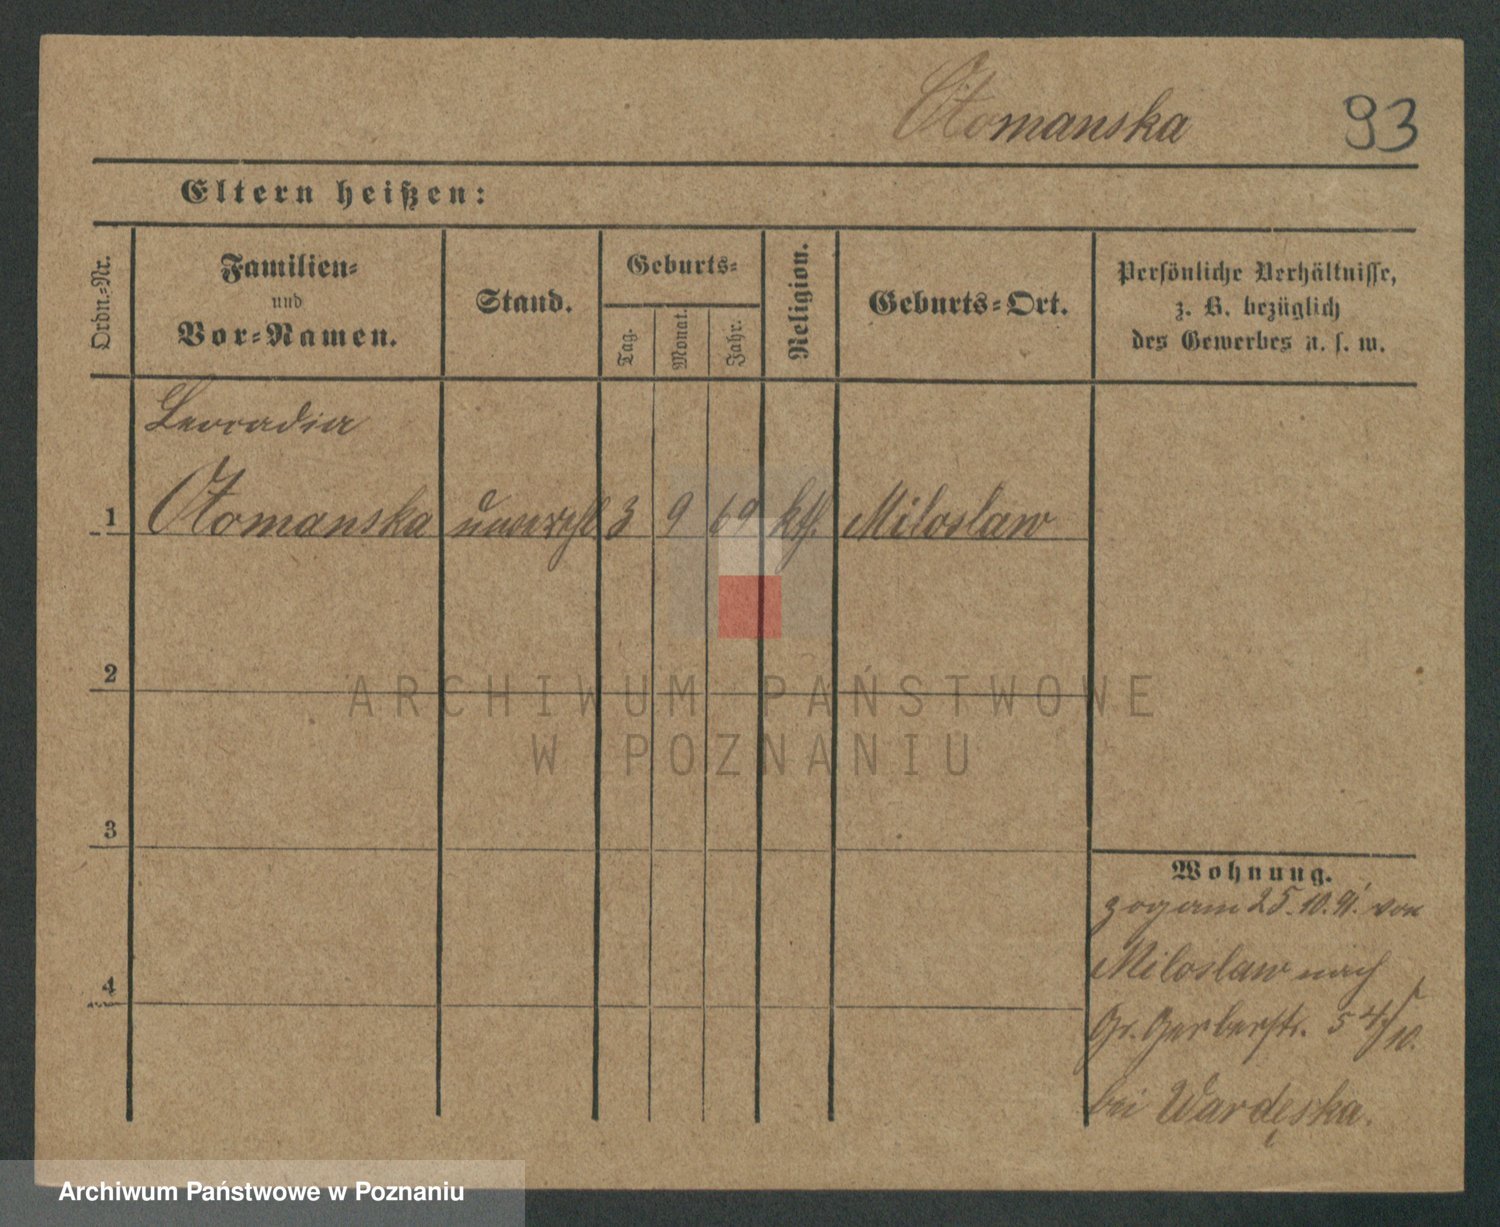 Otomanska 93
Eltern heißen:
Ordn.-Nr.
Familien-
und
Vor-Namen.
Stand.
Geburts-
Tag.
Monat.
Jahr.
Religion.
Geburts-Ort.
Persönliche Verhältnisse,
z. B. bezüglich
des Gewerbes u. s. w.
Leocadia
1 Otomanska unverehl 3 9 69 kth. Miloslaw
2
3
4
Wohnung.
zog am 25.10.91. von
Miloslaw nach
Gr. Gerberstr. 5
bei Wardęska.
ARCHIWUM PAŃSTWOWE
W POZNANIU
Archiwum Państwowe w Poznaniu